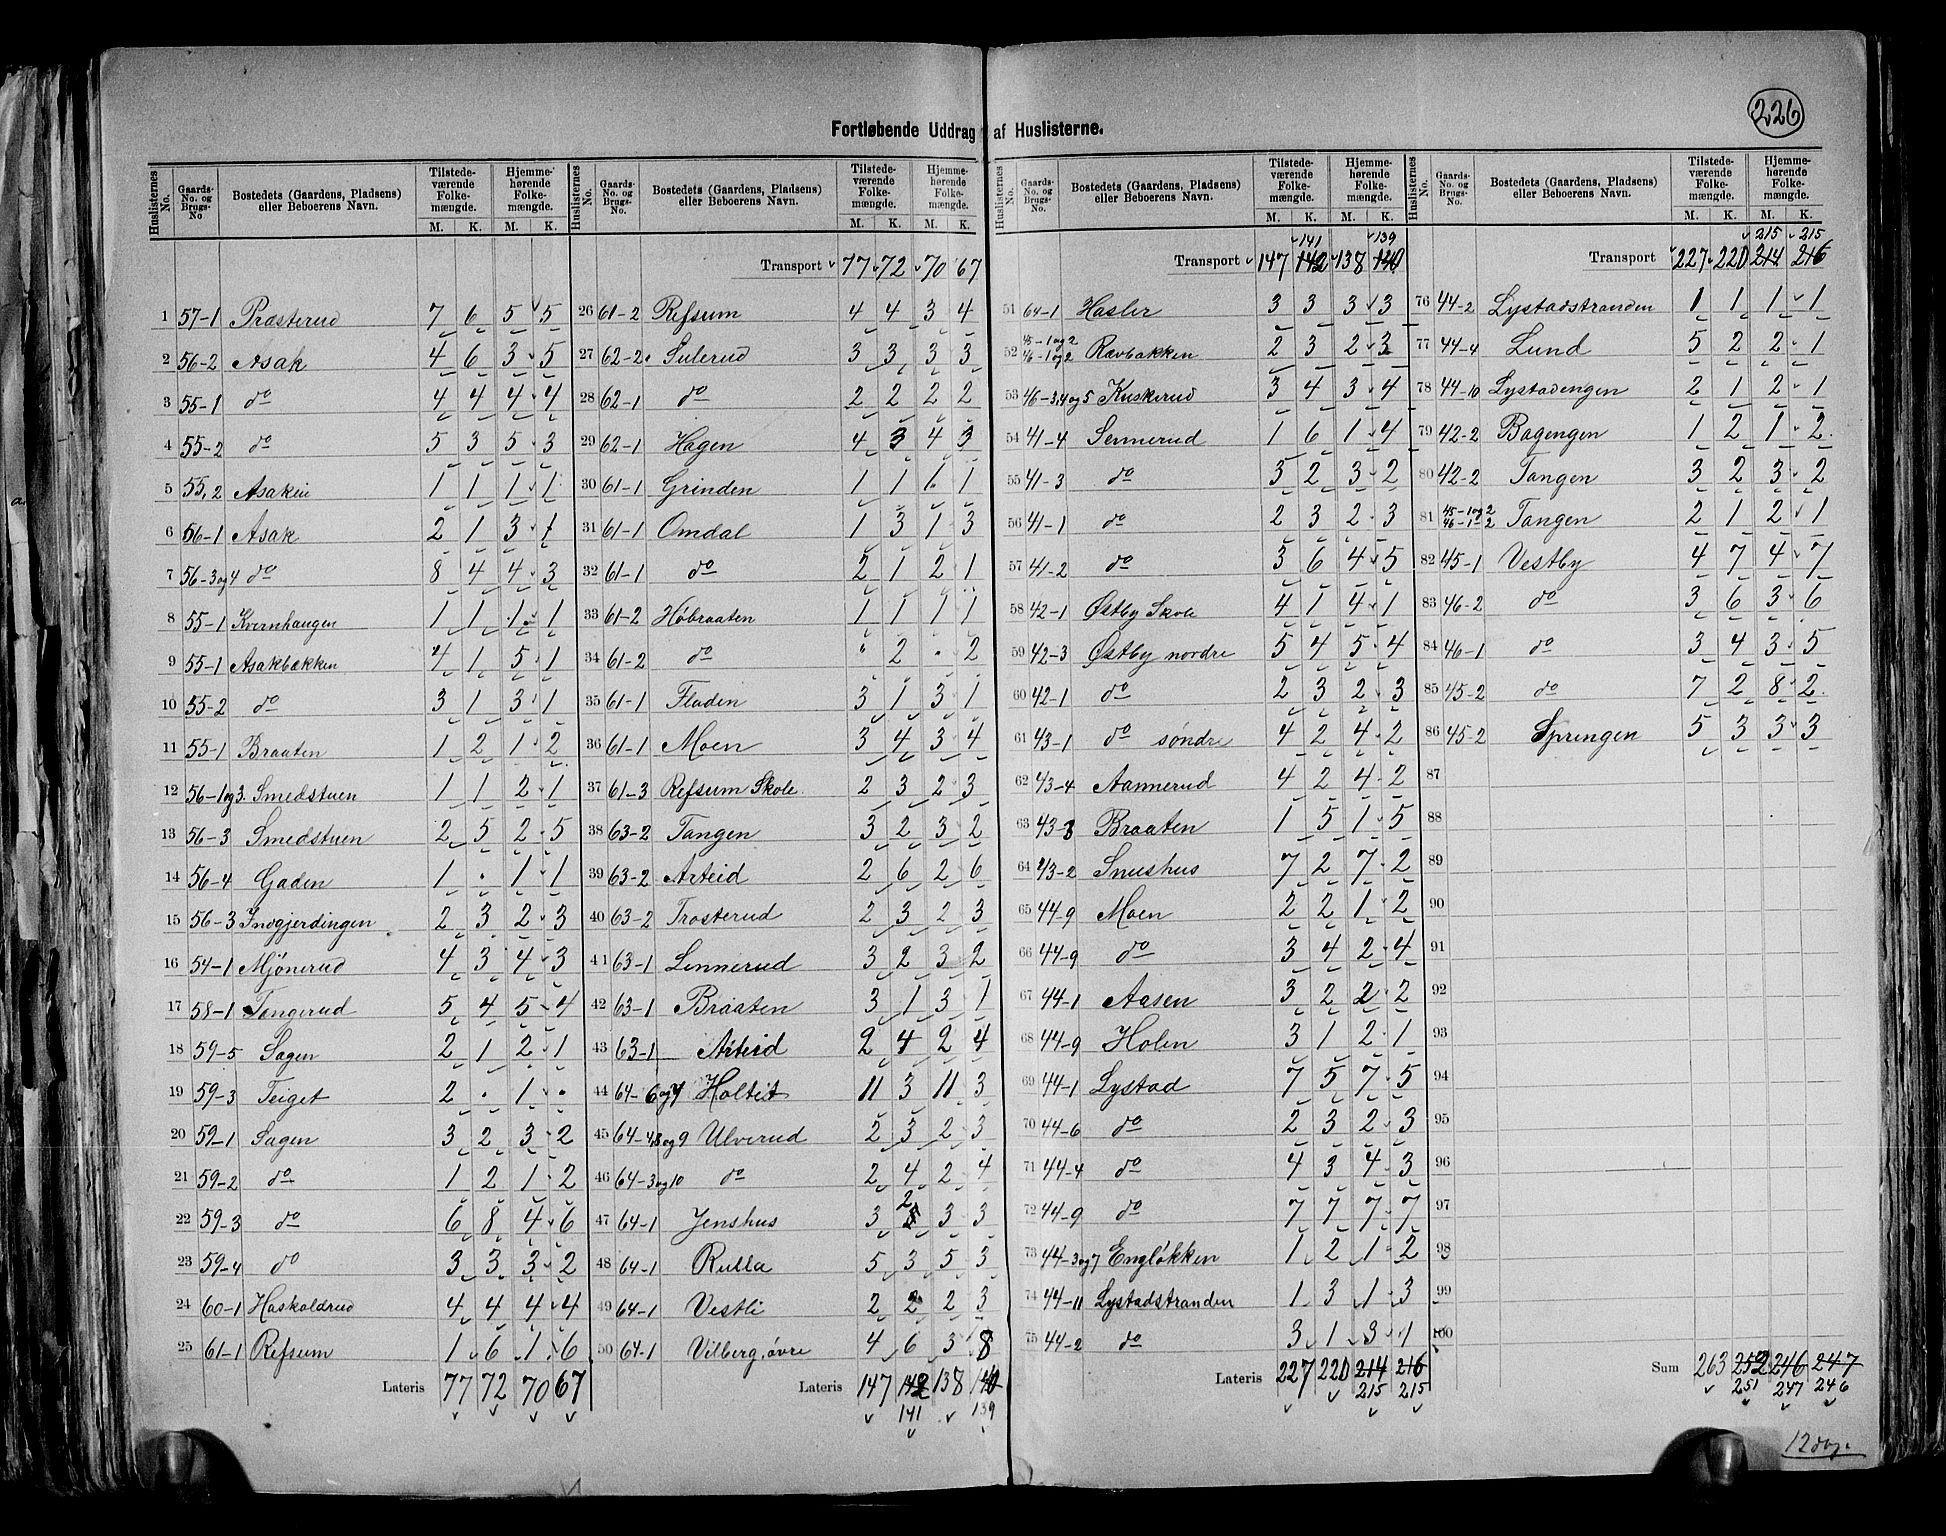 226
Fortløbende Uddrag af Huslisterne.
Huslisternes No. Gaards-No. og Brugs-No Bostedets (Gaardens, Pladsens) eller Beboerens Navn. Tilstedeværende Folkemængde. M. K. Hjemmehørende Folkemængde. M. K.
1 57-1 Præsterud 7 6 5 5
2 56-2 Asak 4 6 3 5
3 55-1 do 4 4 4 4
4 55-2 do 5 3 5 3
5 55,2 Asakin 1 1 1 1
6 56-1 Asak 2 1 3 1
7 56-3og4 do 8 4 4 3
8 55-1 Kvernhaugen 1 1 1 1
9 55-1 Asakbækken 4 1 5 1
10 55-2 do 3 1 3 1
11 55-1 Braaten 1 2 1 2
12 56-1og3. Smedstuen 1 1 2 1
13 56-3 Smedstuen 2 5 2 5
14 56-4 Gaden 1 . 1 1
15 56-3 Indgjerdingen 2 3 2 3
16 54-1 Mjønerud 4 3 4 3
17 58-1 Tangerud 5 4 5 4
18 59-5 Sagen 2 1 2 1
19 59-3 Teiget 2 . 1 .
20 59-1 Sagen 3 2 3 2
21 59-2 do 1 2 1 2
22 59-3 do 6 8 4 6
23 59-4 do 3 3 3 2
24 60-1 Haskoldrud 4 4 4 4
25 61-1 Refsum 1 6 1 6
Lateris 77 72 70 67
Huslisternes No. Gaards-No. og Brugs-No. Bostedets (Gaardens, Pladsens) eller Beboerens Navn. Tilstedeværende Folkemængde. M. K. Hjemmehørende Folkemængde. M. K.
Transport 77 72 70 67
26 61-2 Refsum 4 4 3 4
27 62-2 Sulerud 3 3 3 3
28 62-1 do 2 2 2 2
29 62-1 Hagen 4 3 4 3
30 61-1 Grinden 1 1 1 1
31 61-1 Omdal 1 3 1 3
32 61-1 do 2 1 2 1
33 61-2 Høbraaten 1 1 1 1
34 61-2 do " 2 . 2
35 61-1 Fladen 3 1 3 1
36 61-1 Moen 3 4 3 4
37 61-3 Refsum Skole 2 3 2 3
38 63-2 Tangen 3 2 3 2
39 63-2 Arteid 2 6 2 6
40 63-2 Trosterud 2 3 2 3
41 63-1 Lennerud 3 2 3 2
42 63-1 Braaten 3 1 3 1
43 63-1 Arteid 2 4 2 4
44 64-6og7 Holteit 11 3 11 3
45 64-4,8og9 Ulverud 2 3 2 3
46 64-3og10 do 2 4 2 4
47 64-1 Jenshus 3 2 3 3
48 64-1 Rulla 5 3 5 3
49 64-1 Vestli 2 2 2 3
50 64-1 Vilberg, øvre 4 6 3 8
Lateris 147 142 138 140
141 139
Huslisternes No. Gaards-No. og Brugs-No. Bostedets (Gaardens, Pladsens) eller Beboerens Navn. Tilstedeværende Folkemængde. M. K. Hjemmehørende Folkemængde. M. K.
141 139
Transport 147 142 138 140
51 64-1 Hasler 3 3 3 3
52 45-1og2 46-1og2 Rævbakken 2 3 2 3
53 46-3,4og5 Kuskerud 3 4 3 4
54 41-4 Sennerud 1 6 1 4
55 41-3 do 3 2 3 2
56 41-1 do 2 3 2 3
57 41-2 do 3 6 4 5
58 42-1 Østby Skole 4 1 4 1
59 42-3 Østby nordre 5 4 5 4
60 42-1 do 2 3 2 3
61 43-1 do søndre 4 2 4 2
62 43-4 Aannerud 4 2 4 2
63 43-3 Braaten 1 5 1 5
64 43-2 Snushus 7 2 7 2
65 44-9 Moen 2 2 1 2
66 44-9 do 3 4 2 4
67 44-1 Aasen 3 2 2 2
68 44-9 Holen 3 1 2 1
69 44-1 Lystad 7 5 7 5
70 44-6 do 2 3 2 3
71 44-4 do 4 3 4 3
72 44-9 do 7 7 7 7
73 44-3og7 Engløkken 1 2 1 2
74 44-11 Lystadstranden 1 3 1 3
75 44-2 do 3 1 3 1
Lateris 227 220 214 216
215 215
Huslisternes No. Gaards-No. og Brugs-No. Bostedets (Gaardens, Pladsens) eller Beboerens Navn. Tilstedeværende Folkemængde. M. K. Hjemmehørende Folkemængde. M. K.
215 215
Transport 227 220 214 216
76 44-2 Lystadstranden 1 1 1 1
77 44-4 Lund 5 2 2 1
78 44-10 Lystadengen 2 1 2 1
79 42-2 Bagengen 1 2 1 2
80 42-2 Tangen 3 2 3 2
81 45-1og2 46-1-2 Tangen 2 1 2 1
82 45-1 Vestby 4 7 4 7
83 46-2 do 3 6 3 6
84 46-1 do 3 4 3 5
85 45-2 do 7 2 8 2
86 45-2 Springen 5 3 3 3
87
88
89
90
91
92
93
94
95
96
97
98
99
100
Sum 263 252 246 247
251 247 246